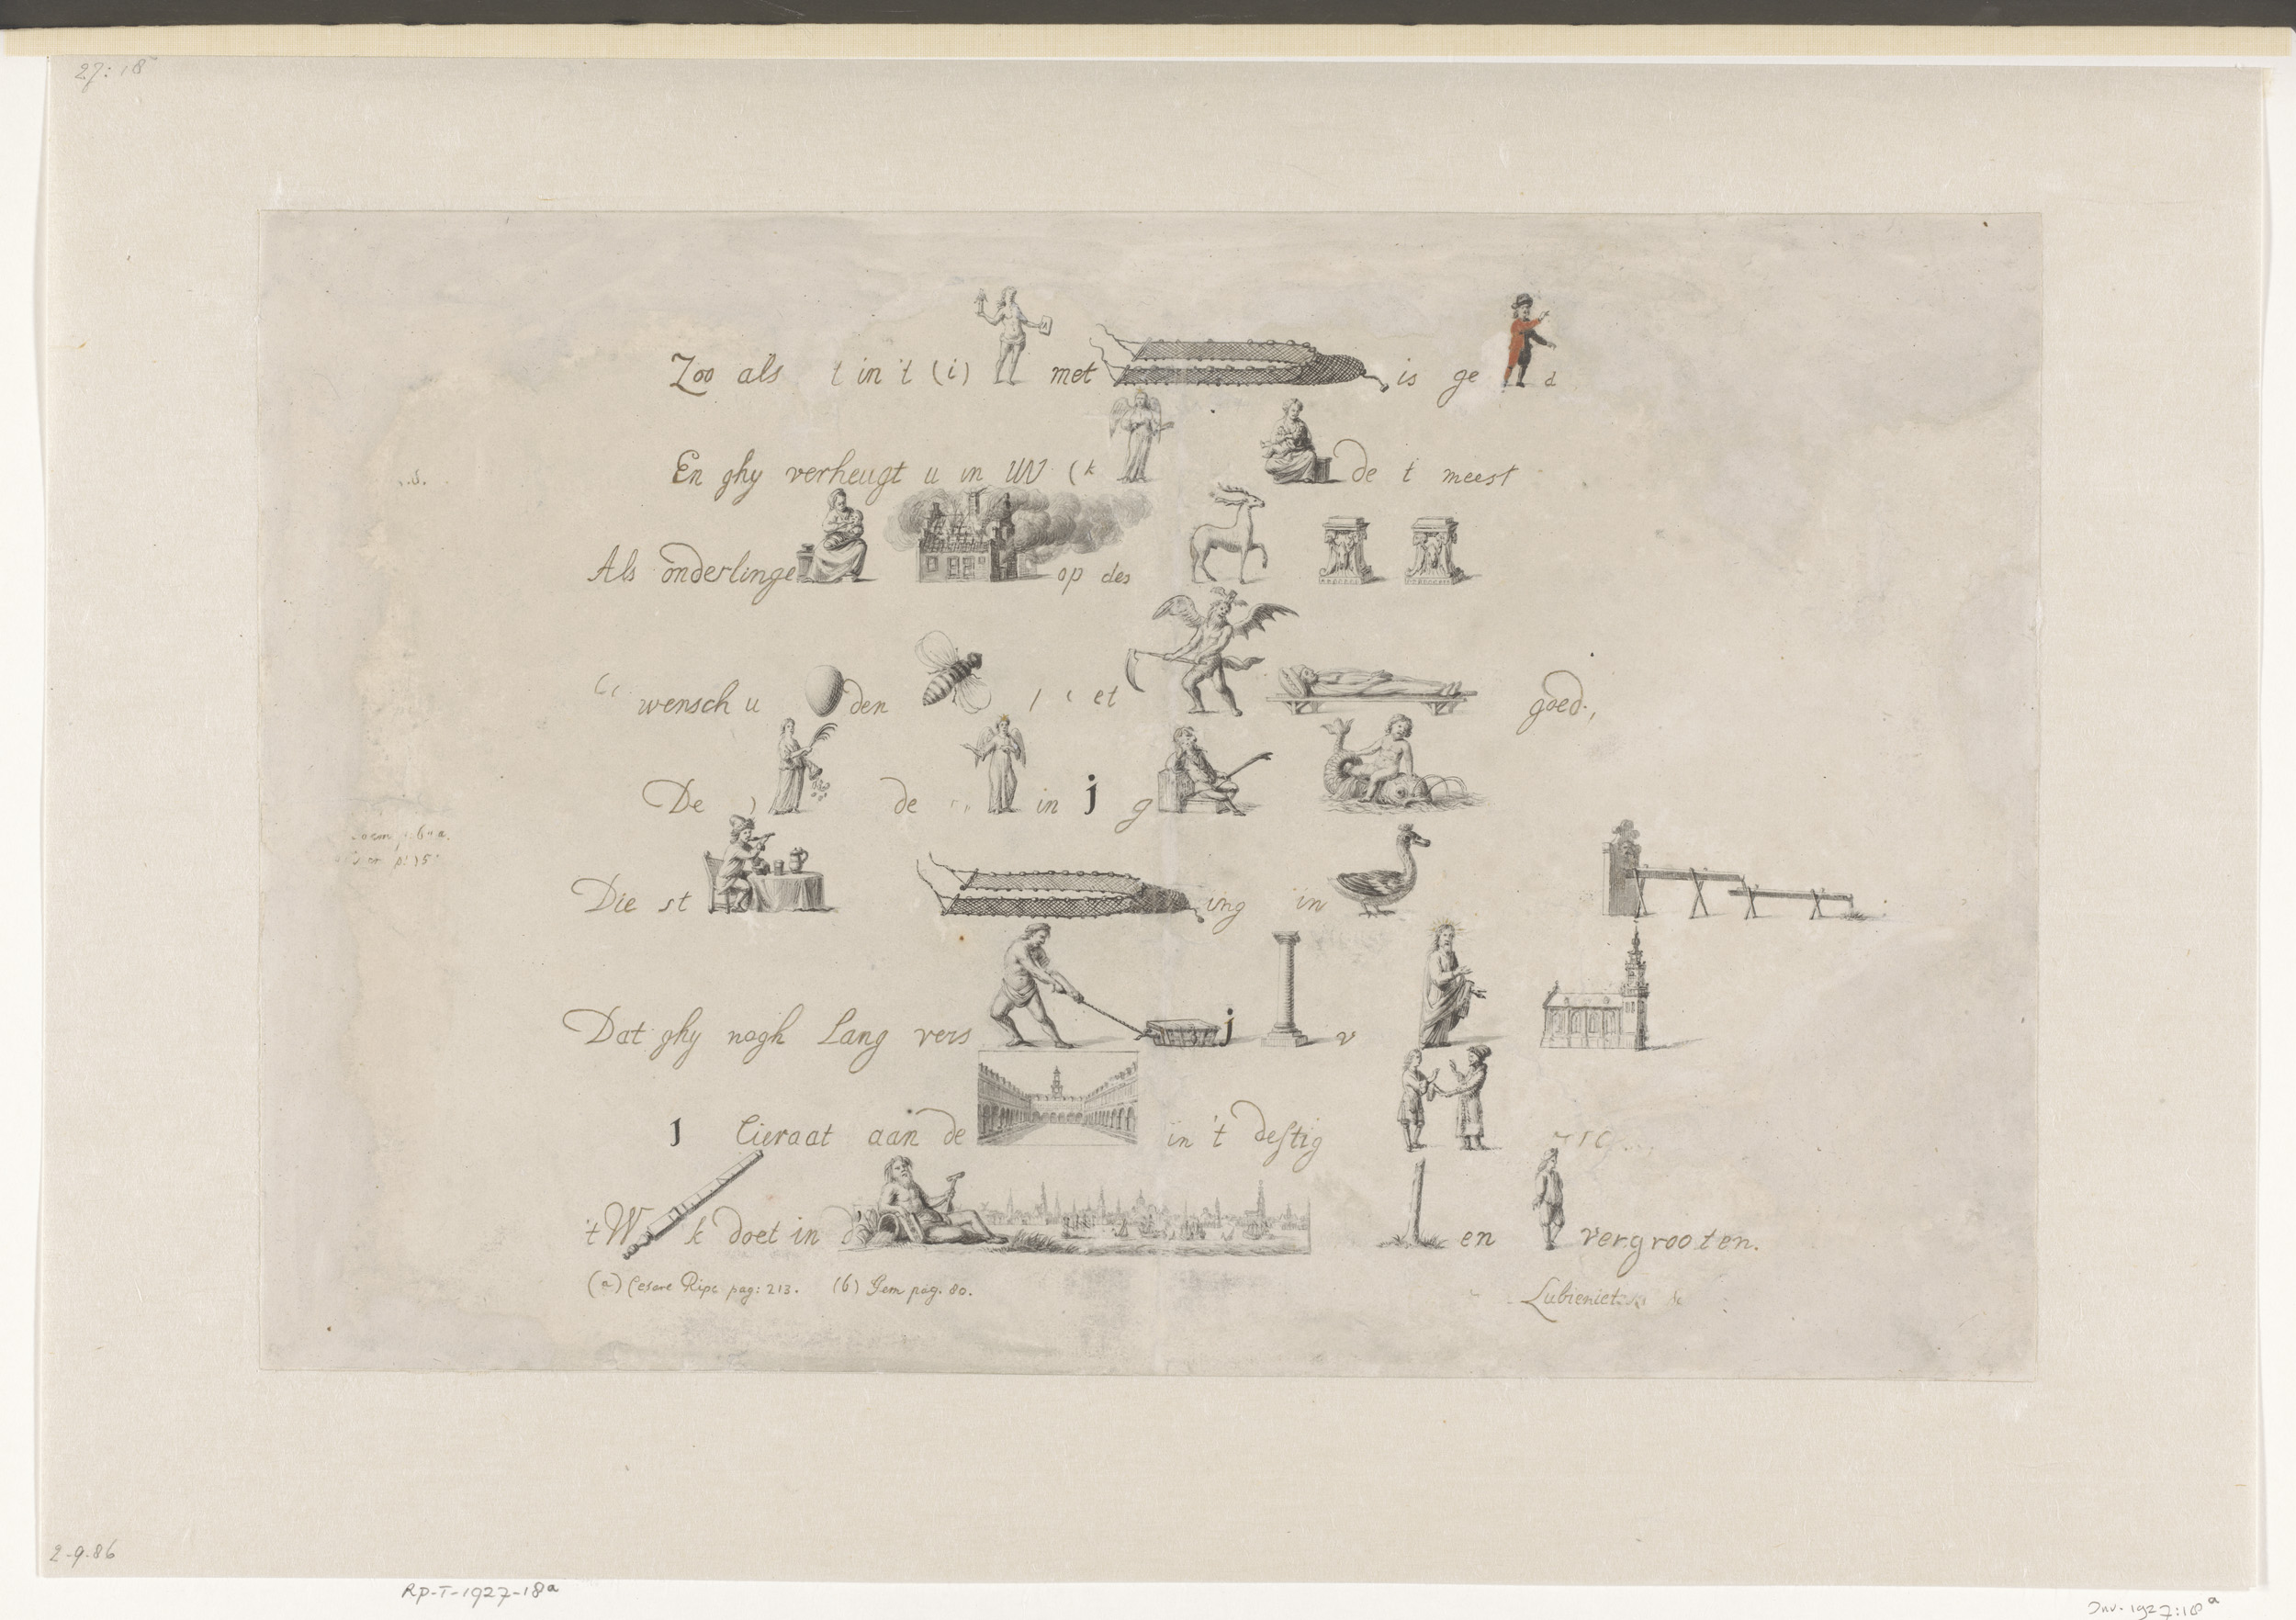 27:18
Zoo als t in 't (i) met is ge d
En ghy verheugt u in UW (k de t meest
Als onderlinge op des
wensch u den et goed.,
De de in j g
Die st ing in
Dat ghy nogh Lang vers j v
J Cieraat aan de in 't destig
't W k doet in d en vergrooten.
(a) Cesare Ripa pag: 213. (b) Gem pag. 80.
2-9-86
RP-T-1927-18a
Inv. 1927:18a